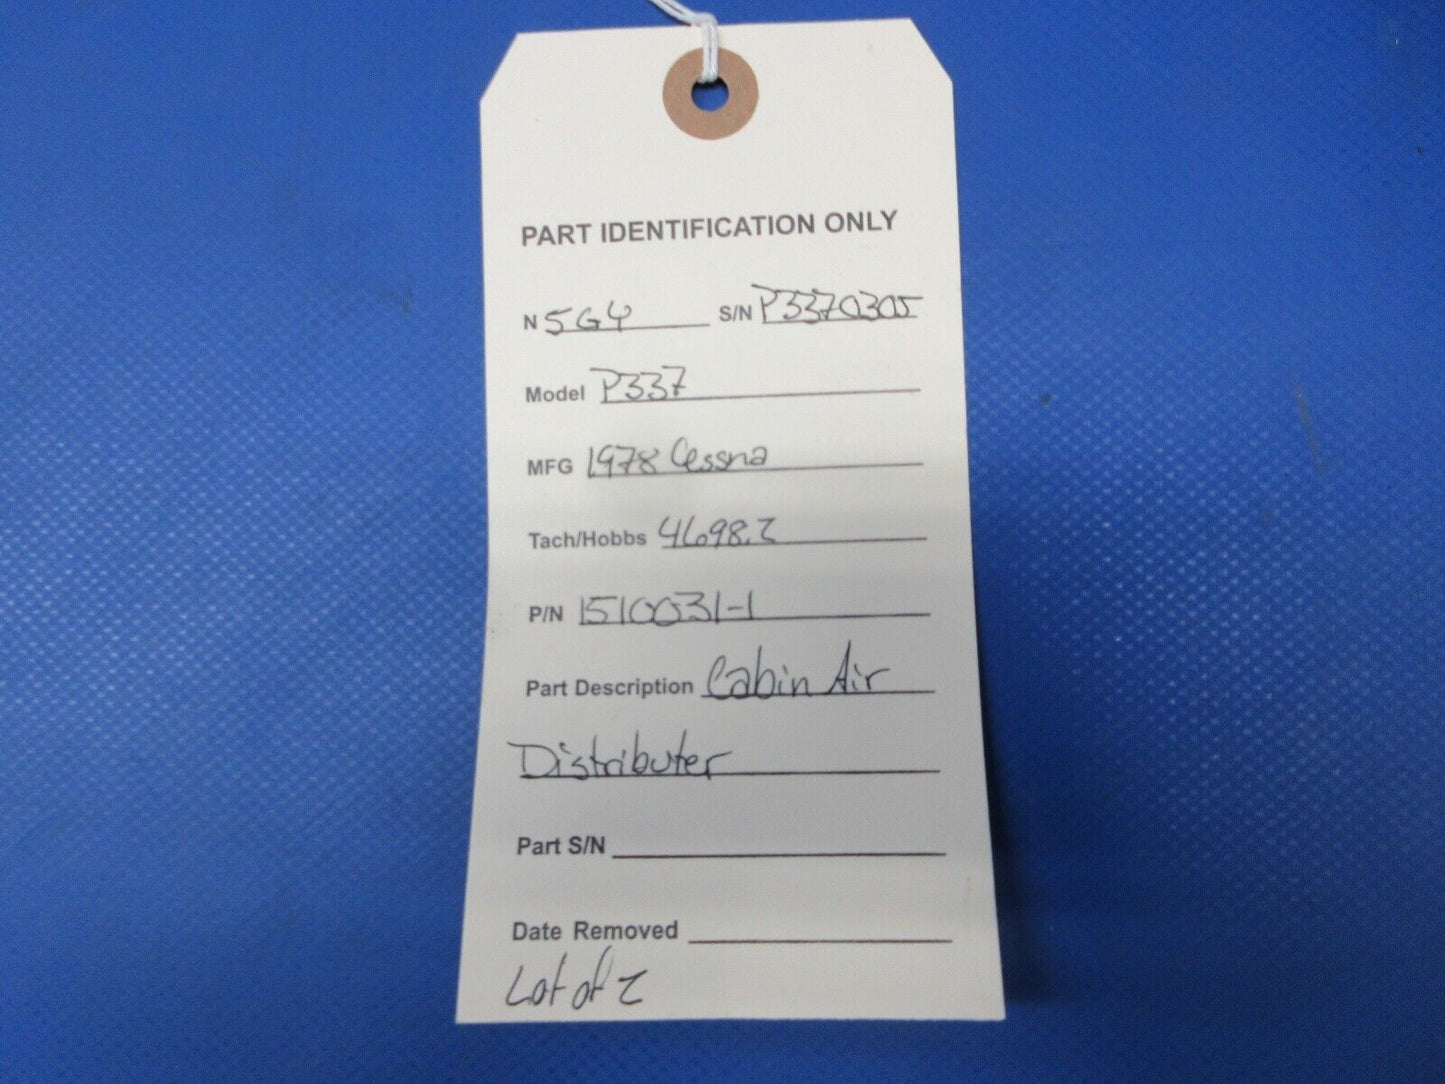 PART IDENTIFICATION ONLY
N 5GY S/N P3370305
Model P337
MFG 1978 Cessna
Tach/Hobbs 4698.2
P/N 1510031-1
Part Description Cabin Air
Distributer
Part S/N
Date Removed
Lot of 2